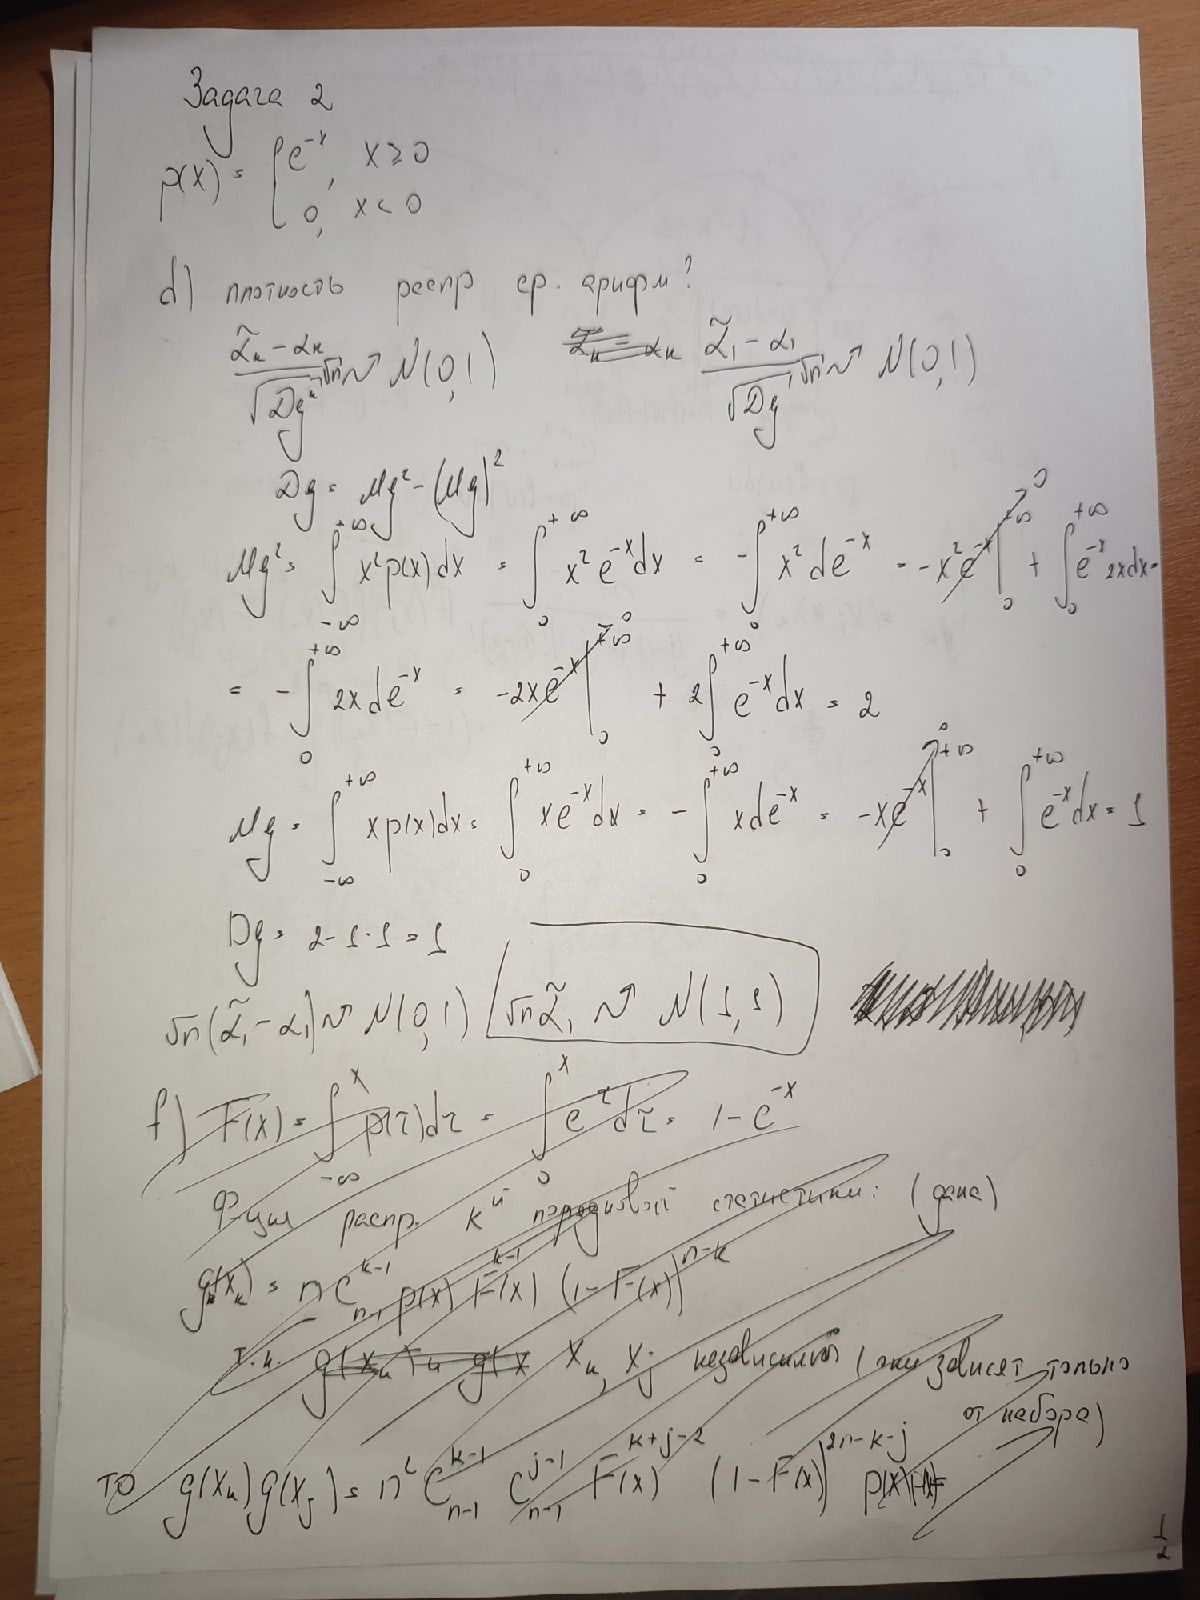 Задача 2
p(x) = { e^{-x}, x ≥ 0
0, x < 0
d) плотность распр ср. арифм?
(α̃_k - α_k)/√(Dξ^k) √n ⇝ N(0,1) (α̃_1 - α_1)/√(Dξ) √n ⇝ N(0,1)
Dξ = Mξ² - (Mξ)²
Mξ² = ∫_{-∞}^{+∞} x² p(x) dx = ∫_0^{+∞} x² e^{-x} dx = -∫_0^{+∞} x² de^{-x} = -x² e^{-x} |_0^{+∞} → 0 + ∫_0^{+∞} e^{-x} 2x dx =
= -∫_0^{+∞} 2x de^{-x} = -2x e^{-x} |_0^{+∞} → 0 + 2∫_0^{+∞} e^{-x} dx = 2
Mξ = ∫_{-∞}^{+∞} x p(x) dx = ∫_0^{+∞} x e^{-x} dx = -∫_0^{+∞} x de^{-x} = -x e^{-x} |_0^{+∞} → 0 + ∫_0^{+∞} e^{-x} dx = 1
Dξ = 2 - 1·1 = 1
√n (α̃_1 - α_1) ⇝ N(0,1) √n α̃_1 ⇝ N(1,1)
f) F(x) = ∫_{-∞}^x p(τ) dτ = ∫_0^x e^τ dτ = 1 - e^{-x}
Ф-ция распр. k^й порядковой статистики: (дана)
g(x_k) = n C_{n-1}^{k-1} p(x) F^{k-1}(x) (1 - F(x))^{n-k}
т.к. x_k, x_j независимы (они зависят только
от набора)
то g(x_k) g(x_j) = n² C_{n-1}^{k-1} C_{n-1}^{j-1} F(x)^{k+j-2} (1 - F(x))^{2n-k-j} p(x)
1/2